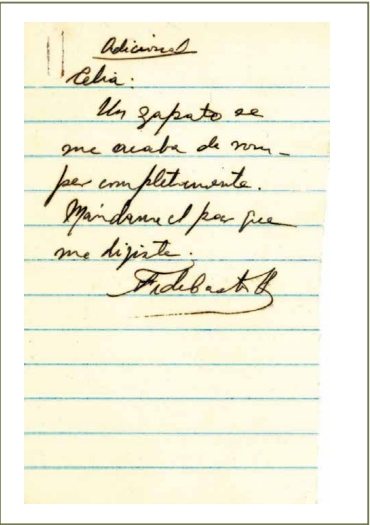 Adicional
Celia:
Un zapato se
me acaba de rom-
per completamente.
Mándame el par que
me dijiste.
Fidel Castro R